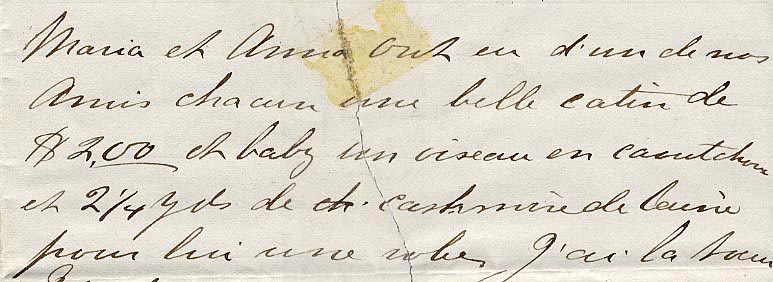 Maria et Anna ont eu d'un de nos
Amis chacun une belle catin de
$2,00 et baby un oiseau en caoutchou
et 2 1/4 yds de ch. cashmire de laine
pour lui une robe, J'ai la